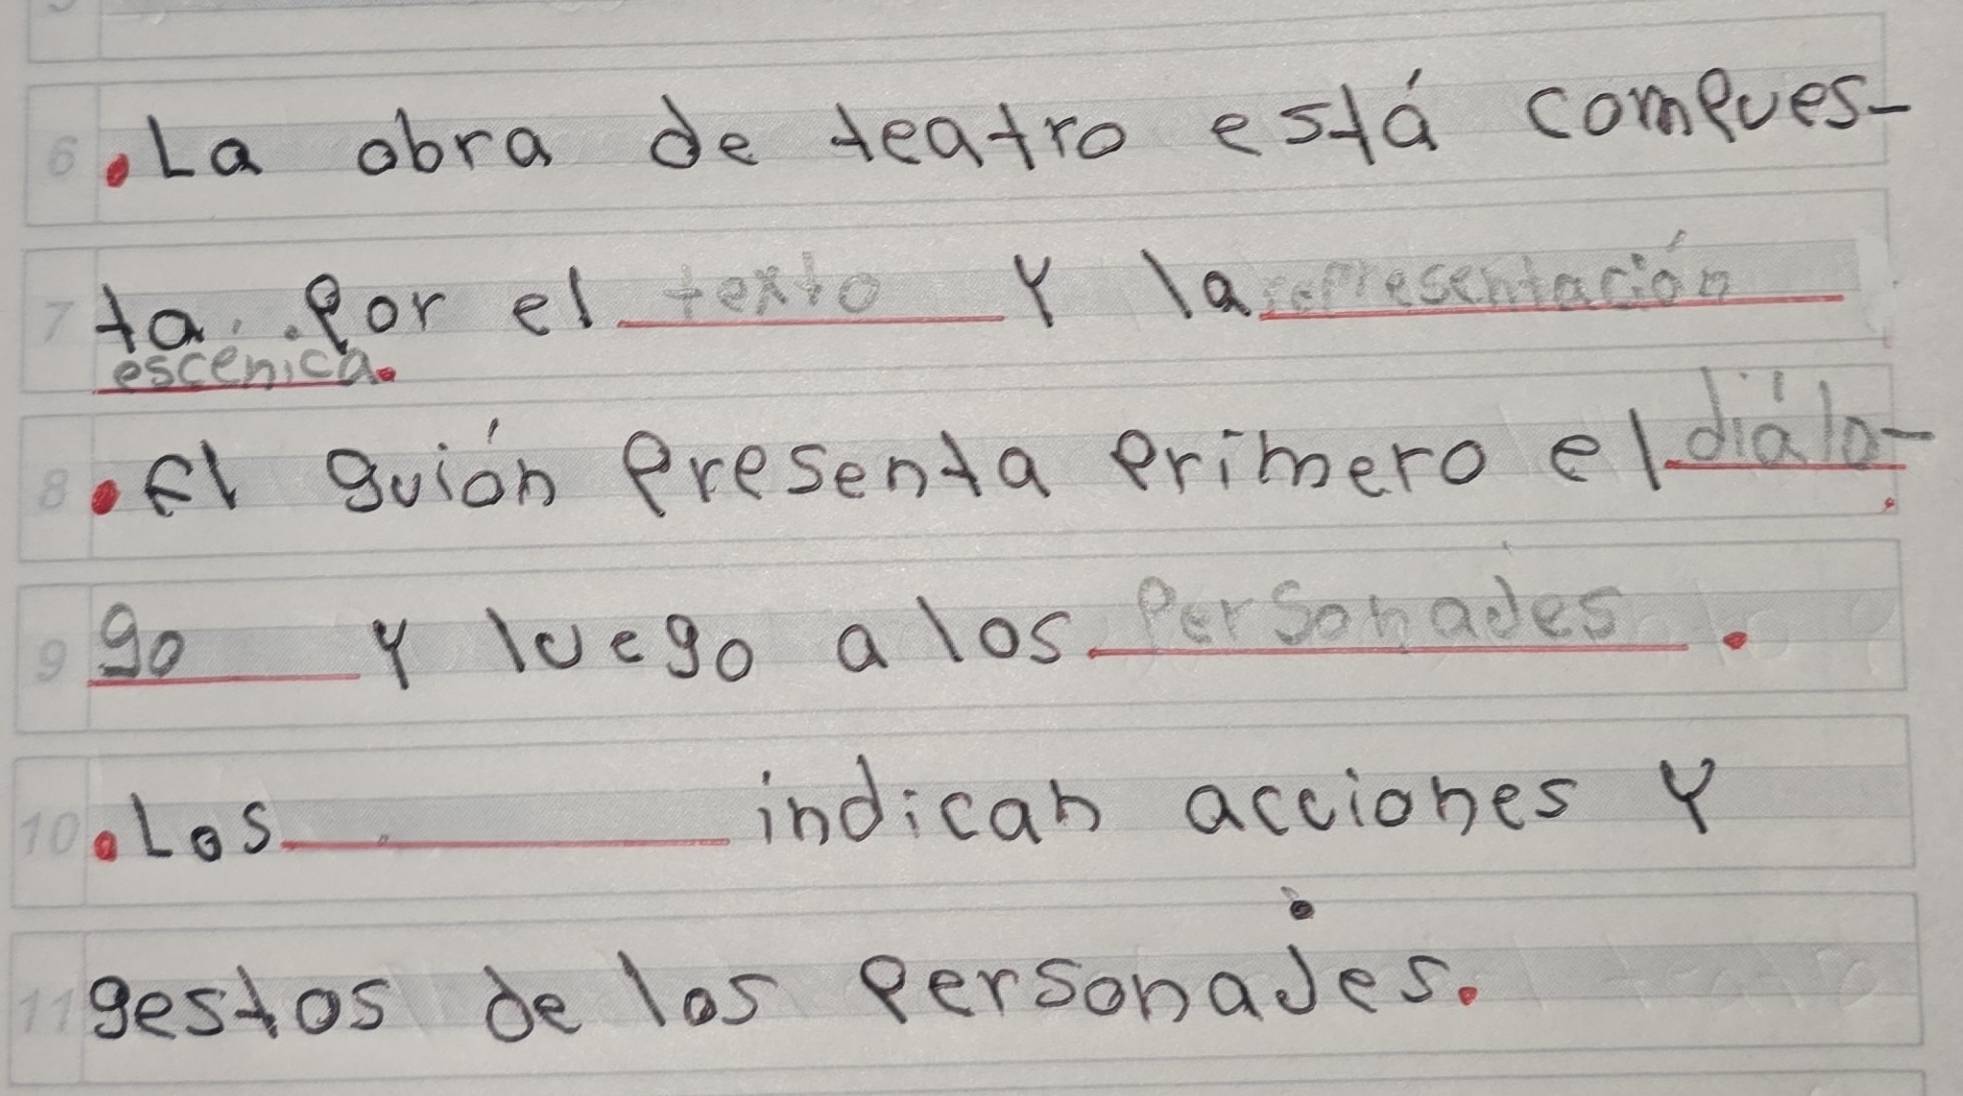 6 • La obra de teatro está compues-
7 ta por el texto y la representación
escenica.
8 • El guión presenta primero el diálo-
9 go y luego a los personajes.
10 • Los indican acciones y
11 gestos de los personajes.